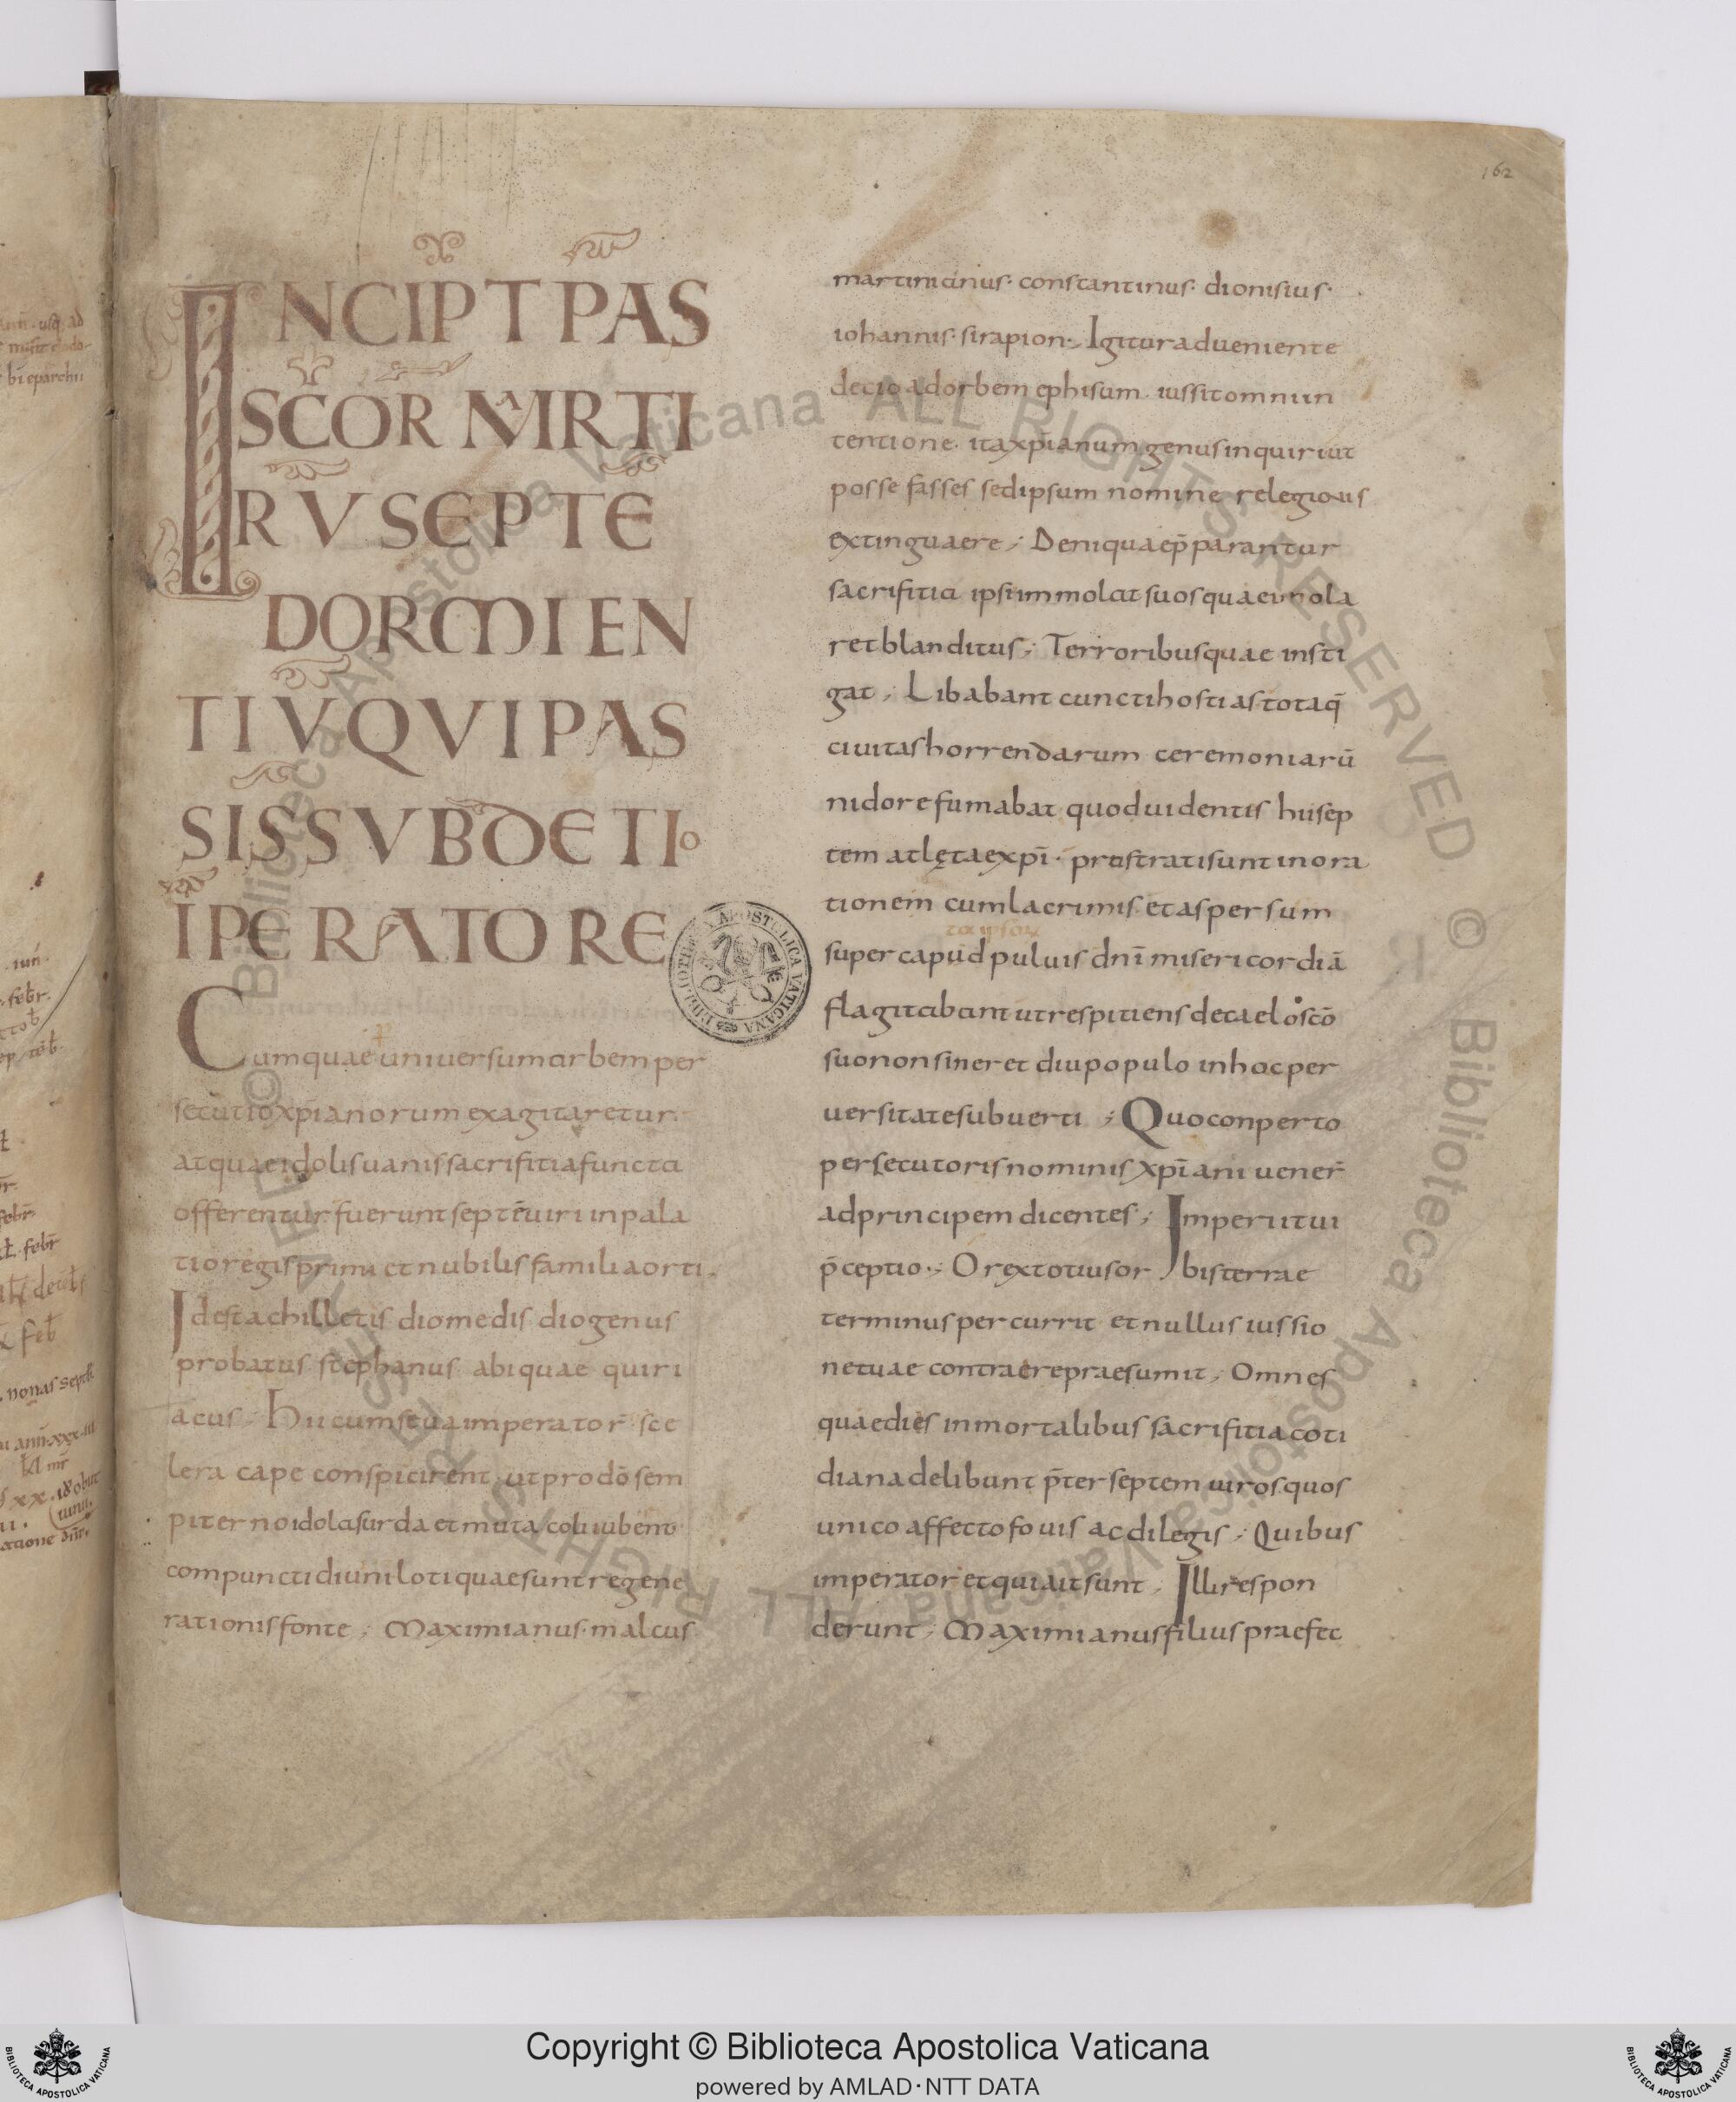 162
INCIPT PAS
SCOR MARTI
RV SEPTE
DORMIEN
TIV QVI PAS
SIS SVB DETIO
IPERATORE
Cumquae uniuersum arbem per
secutio xp̄ianorum exagitaretur.
atquae idolis uanis sacrifitia functa
offerentur fuerunt septē uiri in pala
tio regis primi et nubilis familia orti.
Idest achilletis diomedis diogenus
probatus stephanus abiquae quiri
acus; Hii cum seua imperator sce
lera cape conspicirent ut pro dō sem
piterno idola surda et muta coli iubent
compuncti diuini loti quae sunt regene
rationis fonte; Maximianus malcus
martinianus constantinus dionisius
iohannis sirapion; Igitur adueniente
decio ad orbem ephisum iussit omni in
tentione ita xp̄ianum genus inquiri ut
posse fasses sed ipsum nomine relegionis
extinguaere; Deniquae p̄parantur
sacrifitia ipsi immolat suosquae imola
ret blanditus; Terroribusquae insti
gat; Libabant cuncti hostias totaq̄
ciuitas horrendarum ceremoniarū
nidore fumabat quod uidentis hii sep
tem atlętae xp̄i prostrati sunt in ora
tionem cum lacrimis et aspersum
super capud puluis dn̄i misericordiā
flagitabant ut respitiens de caelo scō
suo non sineret diu populo in hac per
uersitate subuerti; Quo conperto
persecutoris nominis xp̄iani uener̄
ad principem dicentes; Imperii tui
p̄ceptio; O rex totius or bis terrae
terminus percurrit et nullus iussio
ne tuae contraere praesumit; Omnes
quae dies inmortalibus sacrifitia coti
diana delibunt p̄ter septem uiros quos
unico affecto fouis ac dilegis; Quibus
imperator et qui ait sunt; Illi respon
derunt; Maximianus filius praefec
Copyright © Biblioteca Apostolica Vaticana
powered by AMLAD·NTT DATA